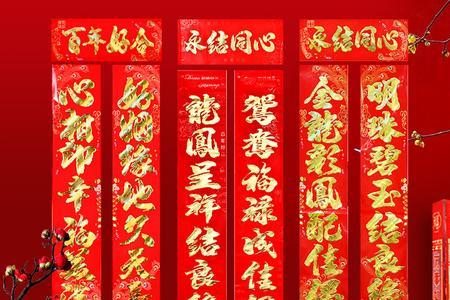 百年好合
永结同心
永结同心
心相印幸福
好姻缘地久天
龍鳳呈祥结良缘
鸳鸯福禄成佳
金龍彩鳳配佳
明珠碧玉结良缘